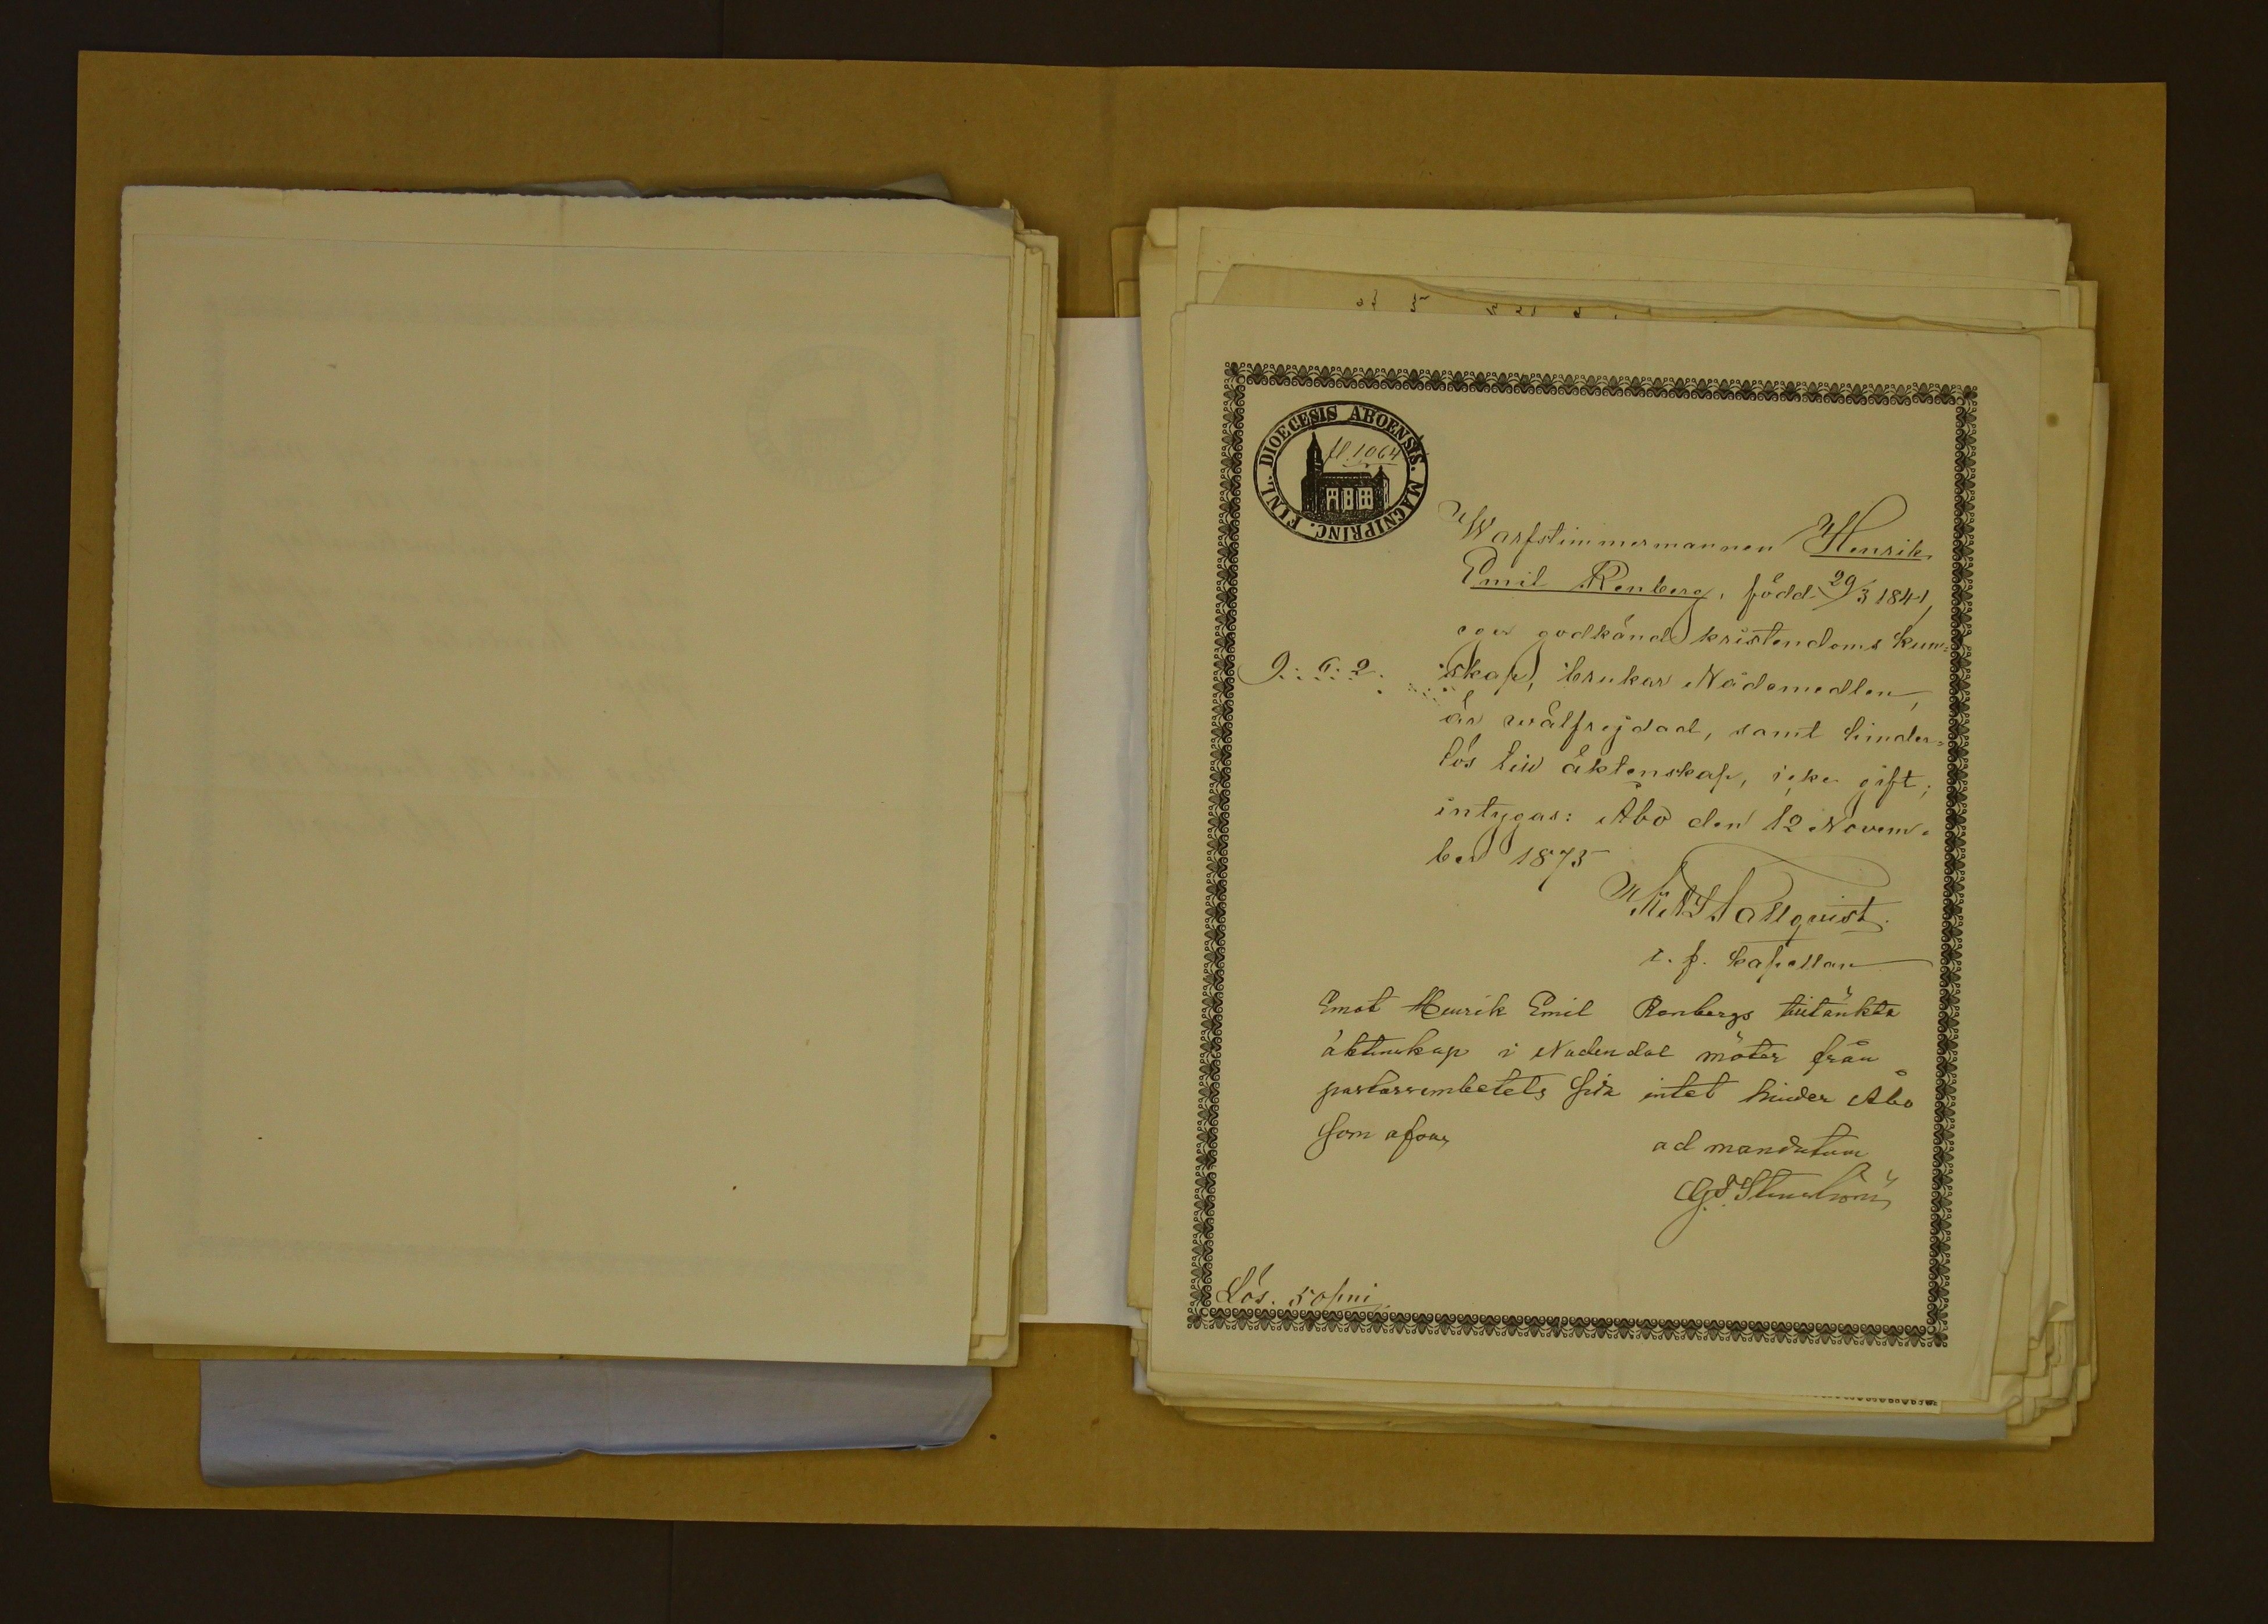 DIOECESIS ABOENSIS. MAGNIPRINC. FINL.
fl. 1064
Warfstimmermannen Henrik
Emil Renberg, född 29/3 1841,
eger godkänd kristendoms kun-
skap, brukar Nådemedlen,
är wälfrejdad, samt hinder-
lös till äktenskap, icke gift;
intygas: Åbo den 12 Novem-
ber 1875
Tallqvist.
t. f. kapellan
Emot Henrik Emil Renbergs tilltänkta
äktenskap i Nådendal möter från
pastorsembetets sida intet hinder Åbo
som ofvan,
ad mandatum
Lös. 50 pni